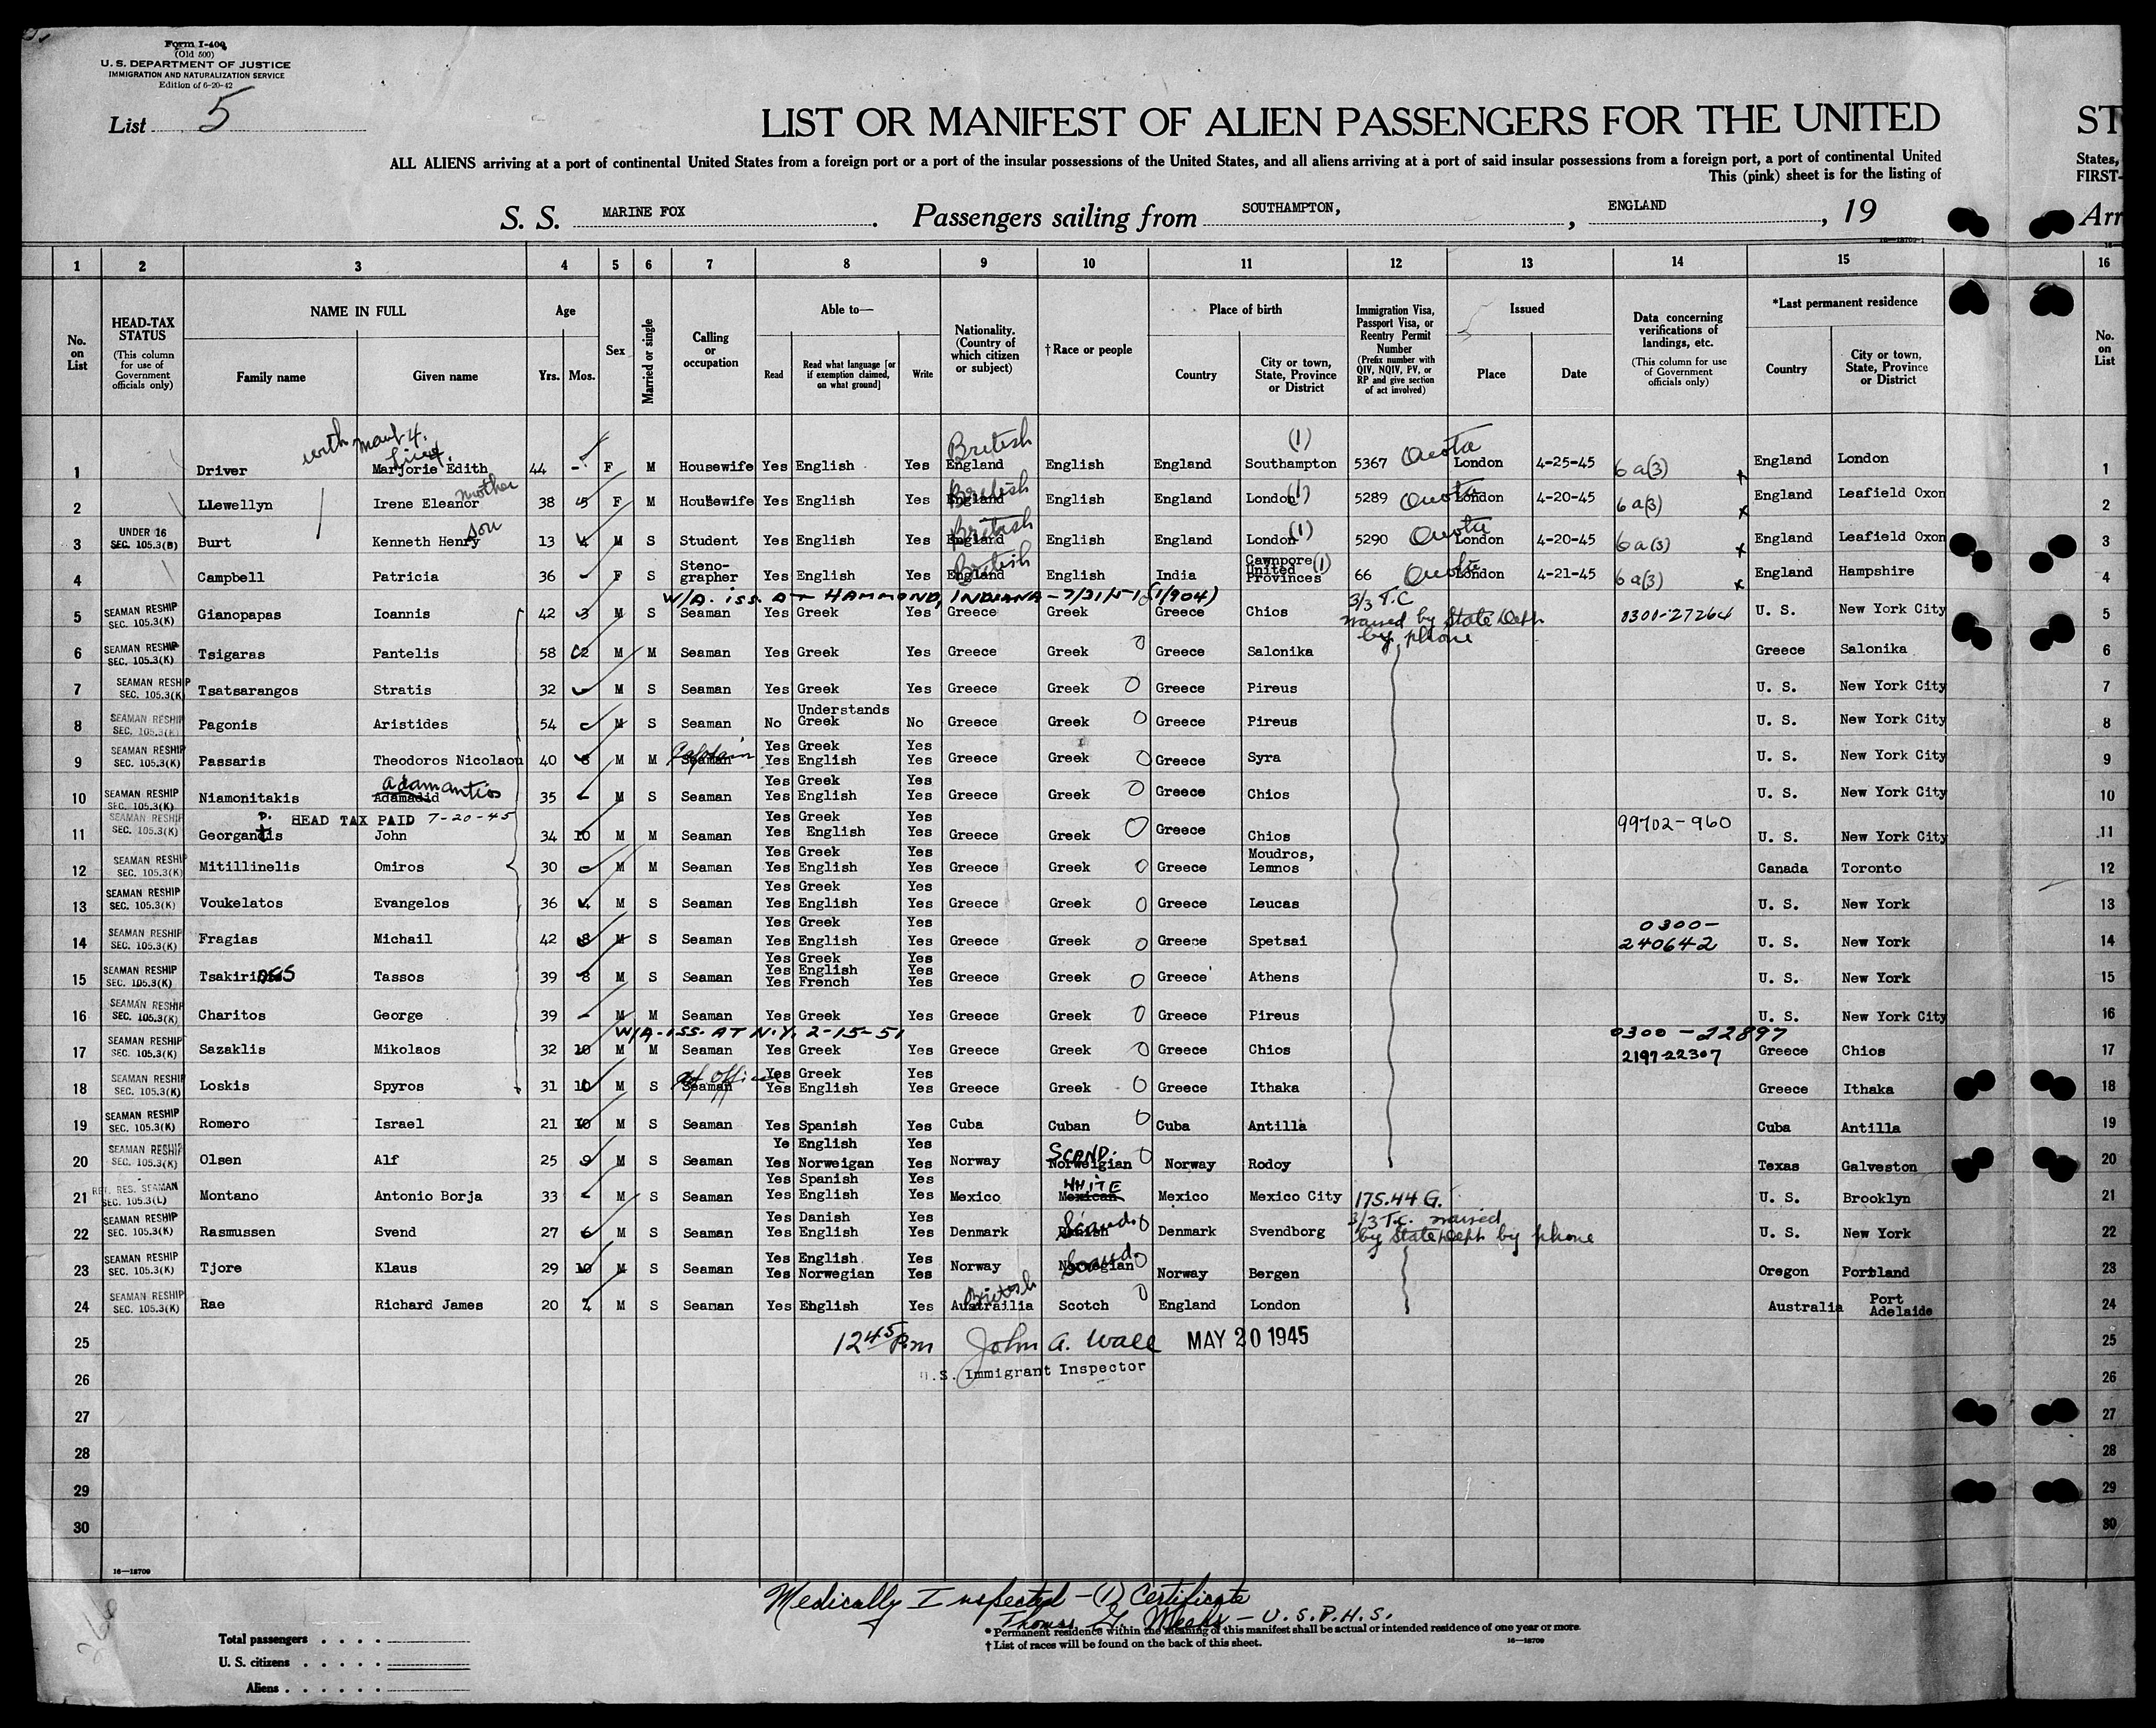 Form I-400
(Old 500)
U. S. DEPARTMENT OF JUSTICE
IMMIGRATION AND NATURALIZATION SERVICE
Edition of 6-20-42
List 5
LIST OR MANIFEST OF ALIEN PASSENGERS FOR THE UNITED ST
ALL ALIENS arriving at a port of continental United States from a foreign port or a port of the insular possessions of the United States, and all aliens arriving at a port of said insular possessions from a foreign port, a port of continental United States,
This (pink) sheet is for the listing of FIRST-
S. S. MARINE FOX. Passengers sailing from SOUTHAMPTON, , ENGLAND , 19 Arr
16—18709-1
1 2 3 4 5 6 7 8 9 10 11 12 13 14 15 16
No. on List
HEAD-TAX STATUS
(This column for use of Government officials only)
NAME IN FULL
Family name Given name
Age
Yrs. Mos.
Sex
Married or single
Calling or occupation
Able to—
Read
Read what language [or if exemption claimed, on what ground]
Write
Nationality. (Country of which citizen or subject)
†Race or people
Place of birth
Country
City or town, State, Province or District
Immigration Visa, Passport Visa, or Reentry Permit Number
(Prefix number with QIV, NQIV, PV, or RP and give section of act involved)
Issued
Place Date
Data concerning verifications of landings, etc.
(This column for use of Government officials only)
*Last permanent residence
Country
City or town, State, Province or District
No. on List
with
British (1) Quota
1 Driver Marjorie Edith 44 - F M Housewife Yes English Yes England English England Southampton 5367 London 4-25-45 6a(3) x England London 1
mother British (1) Quota
2 Llewellyn Irene Eleanor 38 5 F M Housewife Yes English Yes England English England London 5289 London 4-20-45 6a(3) x England Leafield Oxon 2
UNDER 16 son British (1) Quota
3 SEC. 105.3(B) Burt Kenneth Henry 13 4 M S Student Yes English Yes England English England London 5290 London 4-20-45 6a(3) x England Leafield Oxon 3
Steno- British Cawnpore (1) Quota
4 Campbell Patricia 36 - F S grapher Yes English Yes England English India United Provinces 66 London 4-21-45 6a(3) x England Hampshire 4
W/A. iss. AT HAMMOND, INDIANA - 7/31/51 (1/904)
3/3 T.C
waived by State Dept
by phone
5 SEAMAN RESHIP SEC. 105.3(K) Gianopapas Ioannis 42 3 M S Seaman Yes Greek Yes Greece Greek Greece Chios 0300-27264 U. S. New York City 5
6 SEAMAN RESHIP SEC. 105.3(K) Tsigaras Pantelis 58 2 M M Seaman Yes Greek Yes Greece Greek 0 Greece Salonika Greece Salonika 6
7 SEAMAN RESHIP SEC. 105.3(K) Tsatsarangos Stratis 32 - M S Seaman Yes Greek Yes Greece Greek 0 Greece Pireus U. S. New York City 7
Understands
8 SEAMAN RESHIP SEC. 105.3(K) Pagonis Aristides 54 - M S Seaman No Greek No Greece Greek 0 Greece Pireus U. S. New York City 8
Captain Yes Greek Yes
9 SEAMAN RESHIP SEC. 105.3(K) Passaris Theodoros Nicolaou 40 8 M M Seaman Yes English Yes Greece Greek 0 Greece Syra U. S. New York City 9
Adamantios Yes Greek Yes
10 SEAMAN RESHIP SEC. 105.3(K) Niamonitakis Adamadid 35 - M S Seaman Yes English Yes Greece Greek 0 Greece Chios U. S. New York City 10
HEAD TAX PAID 7-20-45 Yes Greek Yes 99702-960
11 SEAMAN RESHIP SEC. 105.3(K) Georgandis John 34 10 M M Seaman Yes English Yes Greece Greek 0 Greece Chios U. S. New York City 11
Yes Greek Yes Moudros,
12 SEAMAN RESHIP SEC. 105.3(K) Mitillinelis Omiros 30 - M M Seaman Yes English Yes Greece Greek 0 Greece Lemnos Canada Toronto 12
Yes Greek Yes
13 SEAMAN RESHIP SEC. 105.3(K) Voukelatos Evangelos 36 4 M S Seaman Yes English Yes Greece Greek 0 Greece Leucas U. S. New York 13
Yes Greek Yes 0300-
14 SEAMAN RESHIP SEC. 105.3(K) Fragias Michail 42 8 M S Seaman Yes English Yes Greece Greek 0 Greece Spetsai 240642 U. S. New York 14
Yes Greek Yes
Yes English Yes
15 SEAMAN RESHIP SEC. 105.3(K) Tsakiri Tassos 39 8 M S Seaman Yes French Yes Greece Greek 0 Greece Athens U. S. New York 15
16 SEAMAN RESHIP SEC. 105.3(K) Charitos George 39 - M M Seaman Yes Greek Yes Greece Greek 0 Greece Pireus U. S. New York City 16
W/A-ISS. AT N.Y. 2-15-51 0300-22897
17 SEAMAN RESHIP SEC. 105.3(K) Sazaklis Mikolaos 32 10 M M Seaman Yes Greek Yes Greece Greek 0 Greece Chios 2197-22307 Greece Chios 17
Yes Greek Yes
18 SEAMAN RESHIP SEC. 105.3(K) Loskis Spyros 31 10 M S Seaman Yes English Yes Greece Greek 0 Greece Ithaka Greece Ithaka 18
19 SEAMAN RESHIP SEC. 105.3(K) Romero Israel 21 10 M S Seaman Yes Spanish Yes Cuba Cuban 0 Cuba Antilla Cuba Antilla 19
Ye English Yes SCAND.
20 SEAMAN RESHIP SEC. 105.3(K) Olsen Alf 25 9 M S Seaman Yes Norweigan Yes Norway Norweigian 0 Norway Rodoy Texas Galveston 20
Yes Spanish Yes WHITE
21 RET. RES. SEAMAN SEC. 105.3(L) Montano Antonio Borja 33 - M S Seaman Yes English Yes Mexico Mexican Mexico Mexico City 175.44 G. U. S. Brooklyn 21
Yes Danish Yes Scand. 3/3 T.C. waived
22 SEAMAN RESHIP SEC. 105.3(K) Rasmussen Svend 27 6 M S Seaman Yes English Yes Denmark Danish 0 Denmark Svendborg by State Dept by phone U. S. New York 22
Yes English Yes Scand.
23 SEAMAN RESHIP SEC. 105.3(K) Tjore Klaus 29 10 M S Seaman Yes Norwegian Yes Norway Norwegian 0 Norway Bergen Oregon Portland 23
British Port
24 SEAMAN RESHIP SEC. 105.3(K) Rae Richard James 20 4 M S Seaman Yes English Yes Austrailia Scotch 0 England London Australia Adelaide 24
25 12 45 P.m John A. Wall MAY 20 1945 25
U.S. Immigrant Inspector
26 26
27 27
28 28
29 29
30 30
16—18709
Medically Inspected - (1) Certificate
Thomas G. Meeks - U.S.P.H.S.
* Permanent residence within the meaning of this manifest shall be actual or intended residence of one year or more.
† List of races will be found on the back of this sheet.
16—18709
Total passengers
U. S. citizens
Aliens